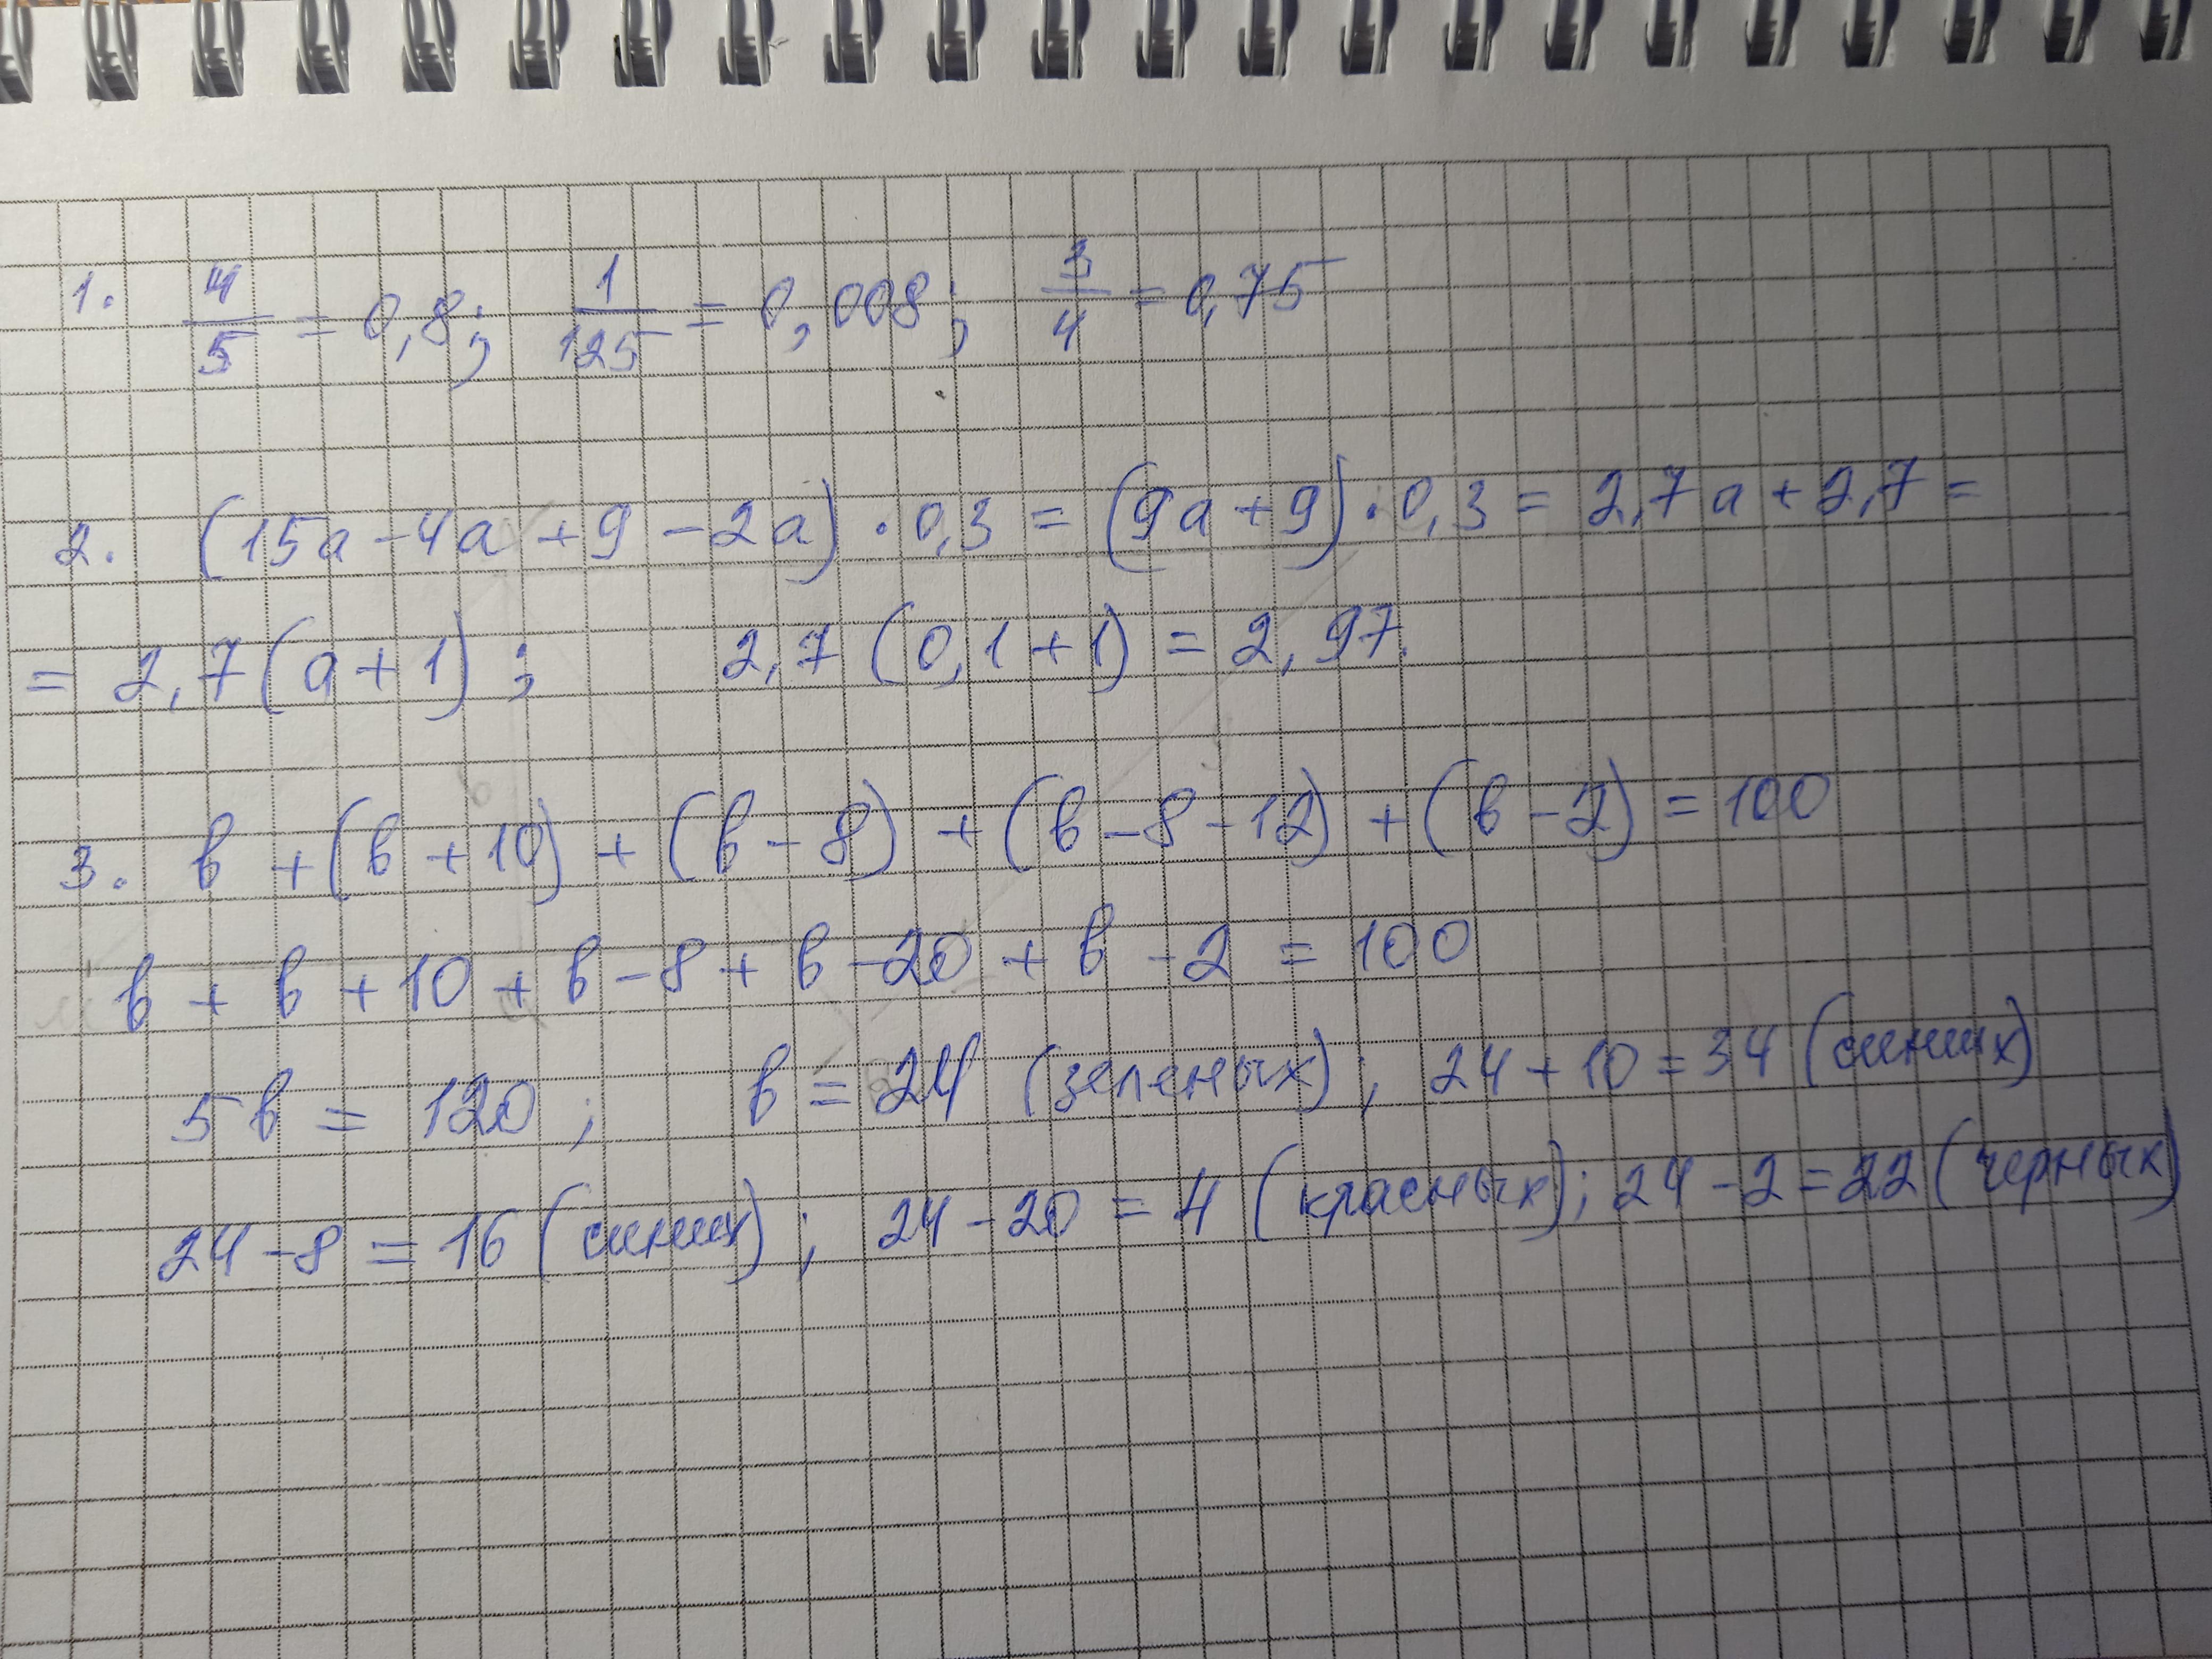 1. 4/5 = 0,8; 1/125 = 0,008; 3/4 = 0,75
2. (15a - 4a + 9 - 2a) · 0,3 = (9a + 9) · 0,3 = 2,7a + 2,7 =
= 2,7(a + 1); 2,7(0,1 + 1) = 2,97.
3. в + (в + 10) + (в - 8) + (в - 8 - 12) + (в - 2) = 100
в + в + 10 + в - 8 + в - 20 + в - 2 = 100
5в = 120; в = 24 (зеленых); 24 + 10 = 34 (синих)
24 - 8 = 16 (синих); 24 - 20 = 4 (красных); 24 - 2 = 22 (черных)